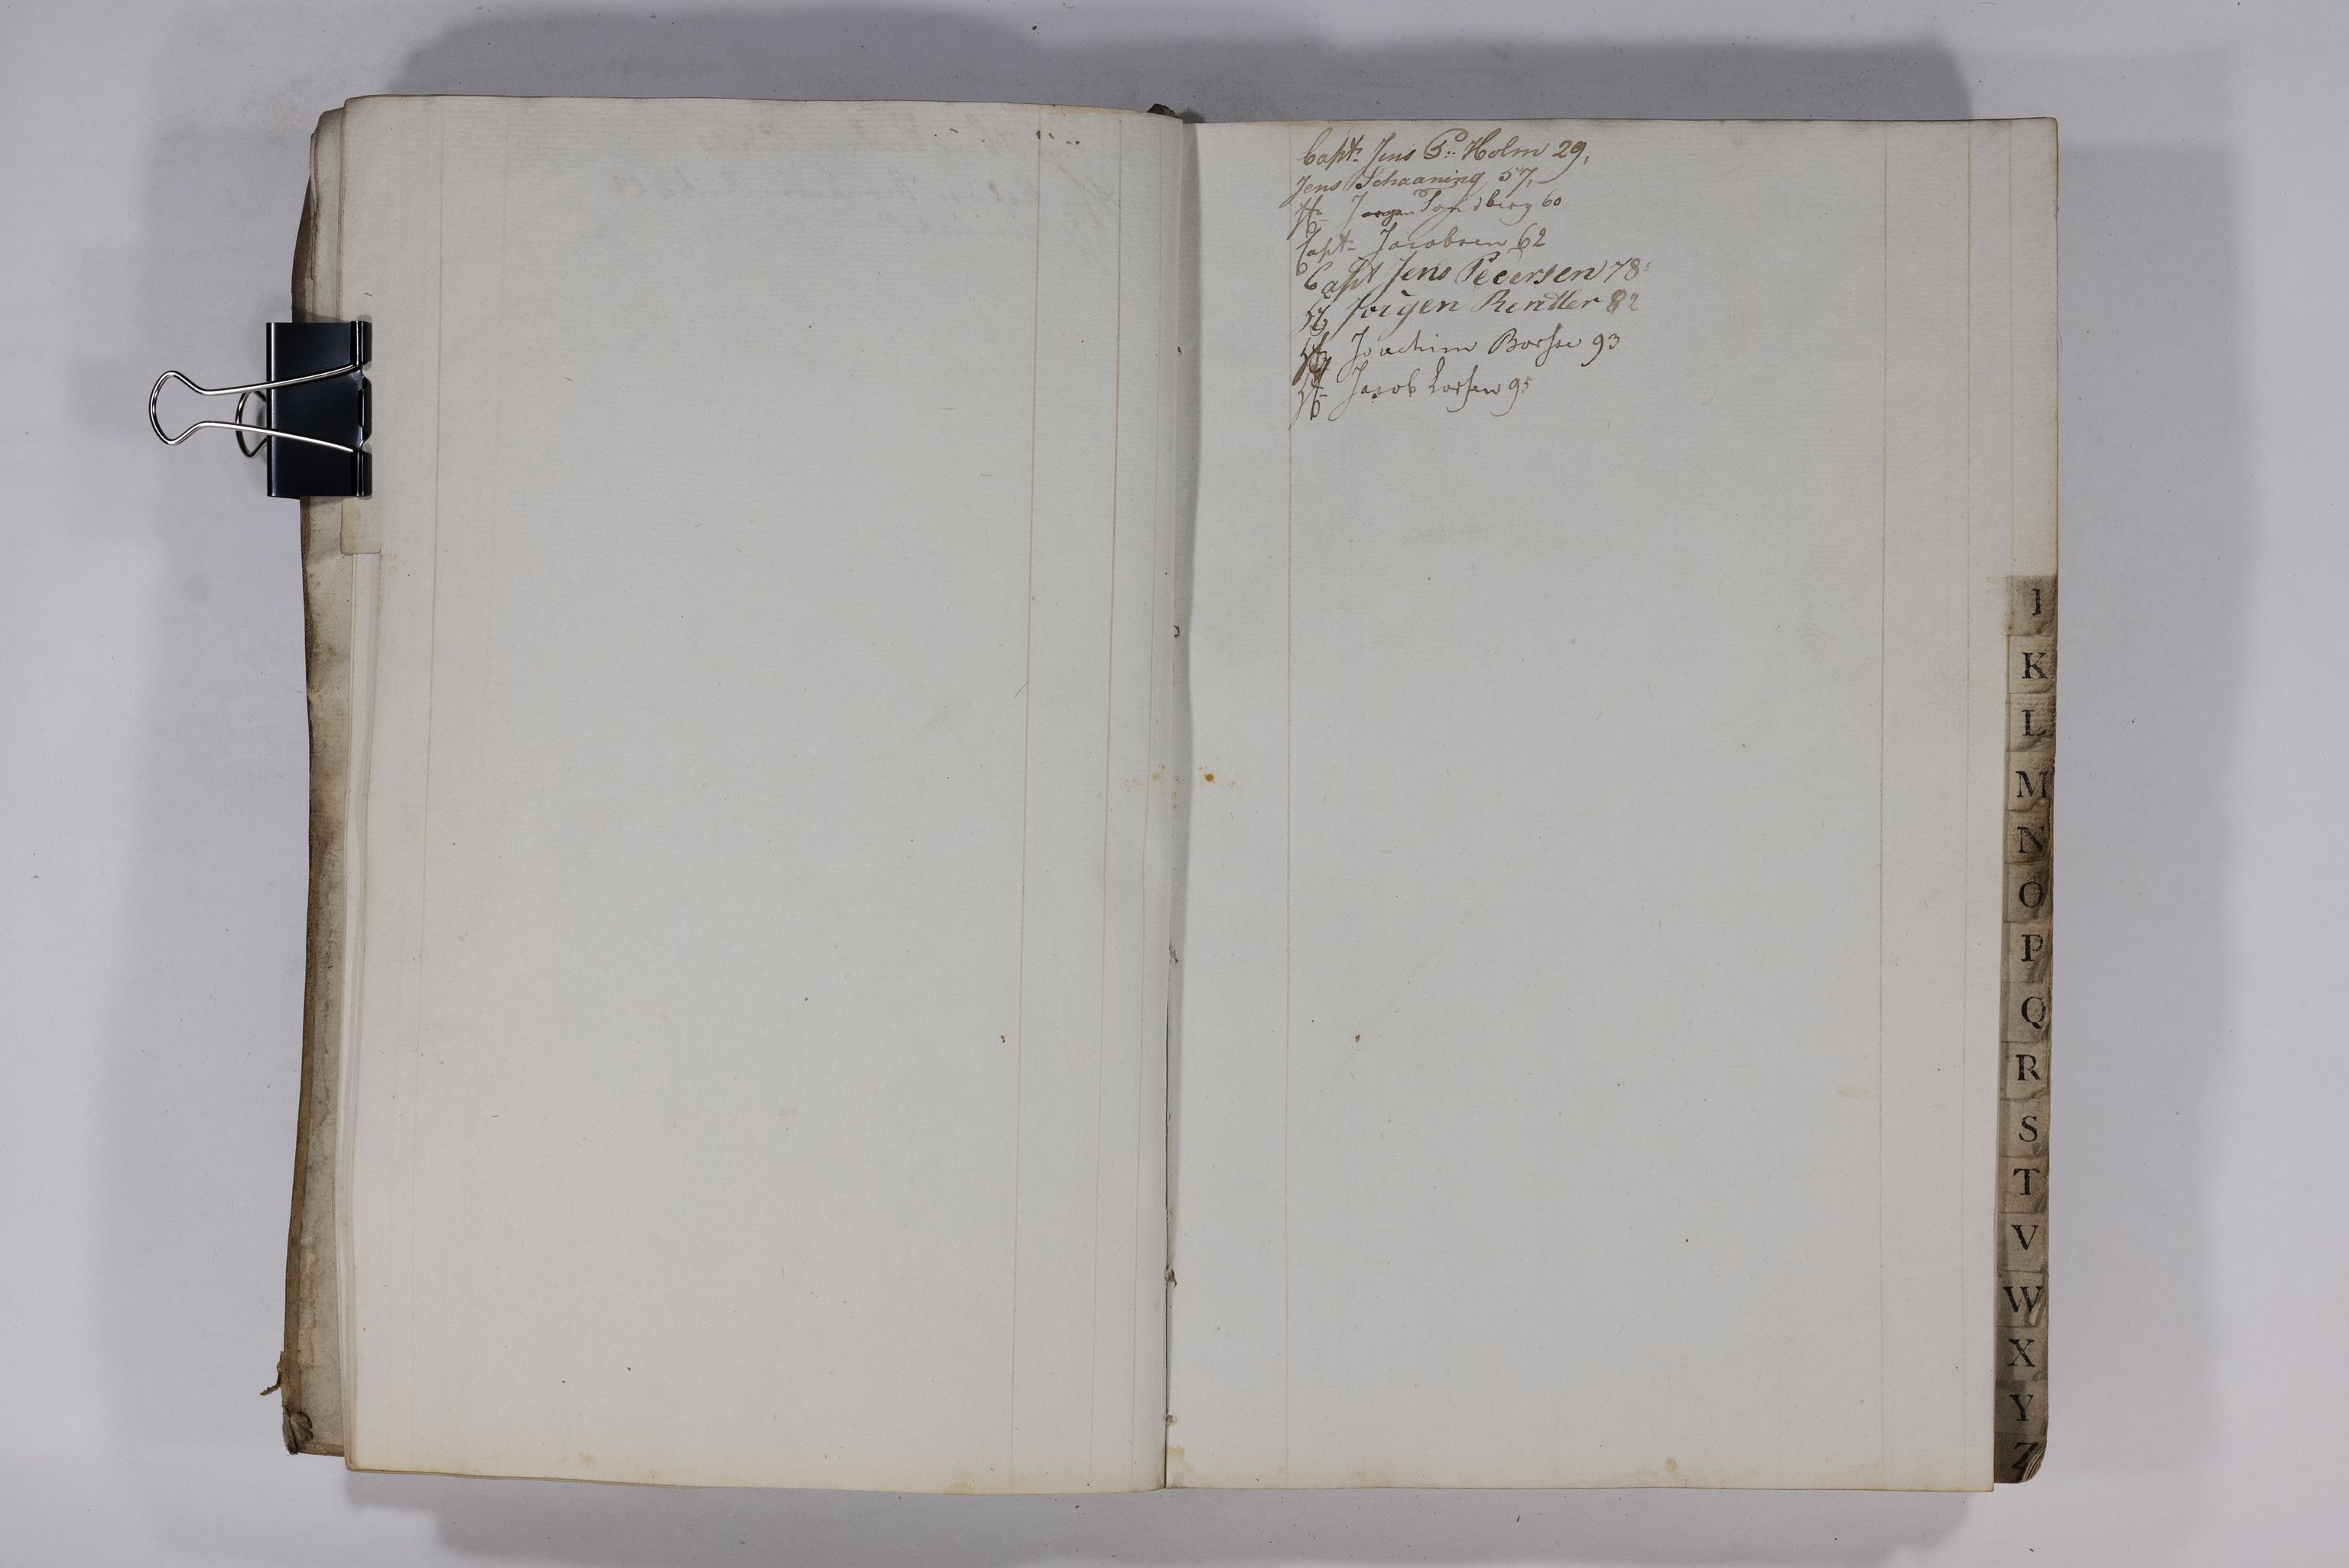 Capt: Jens P: Holm 29,
Jens Schaaning 57,
Hr Jørgen Sandberg 60
Capt Jacobsen 62
Capt Jens Pedersen 78
Hr Jörgen Rendler 82
Hr Joachim Borse 93
Hr Jacob Larsen 95
I
K
L
M
N
O
P
Q
R
S
T
V
W
X
Y
Z